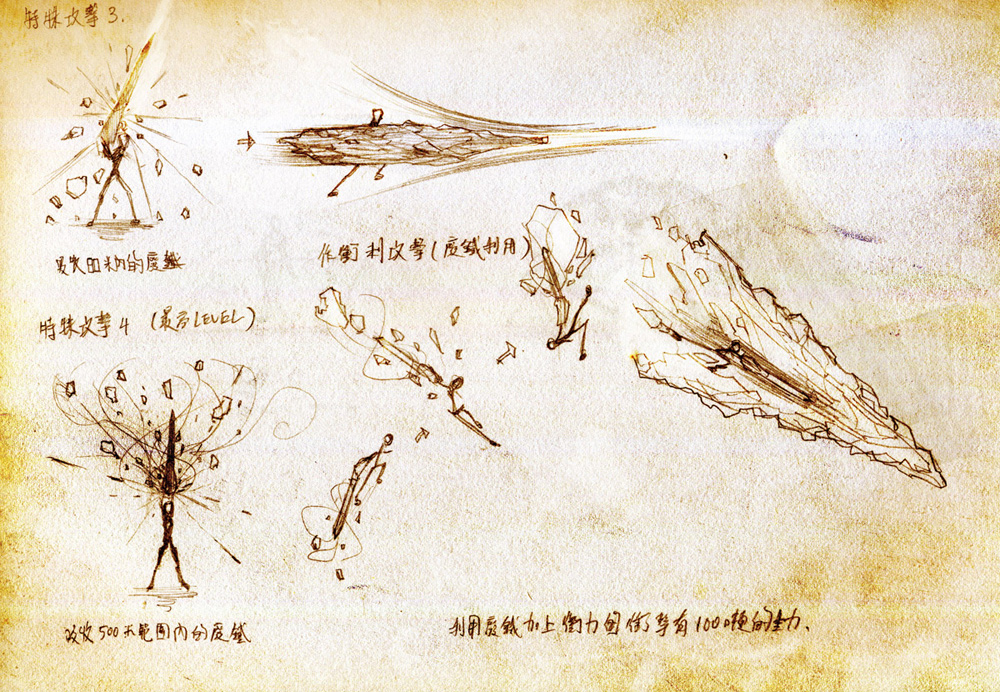 特殊攻擊 3.
吸收四米內的廢鐵
作衝刺攻擊(廢鐵利用)
特殊攻擊 4 (最高LEVEL)
吸收500米範圍內的廢鐵
利用廢鐵加上衝力 衝擊有1000 的